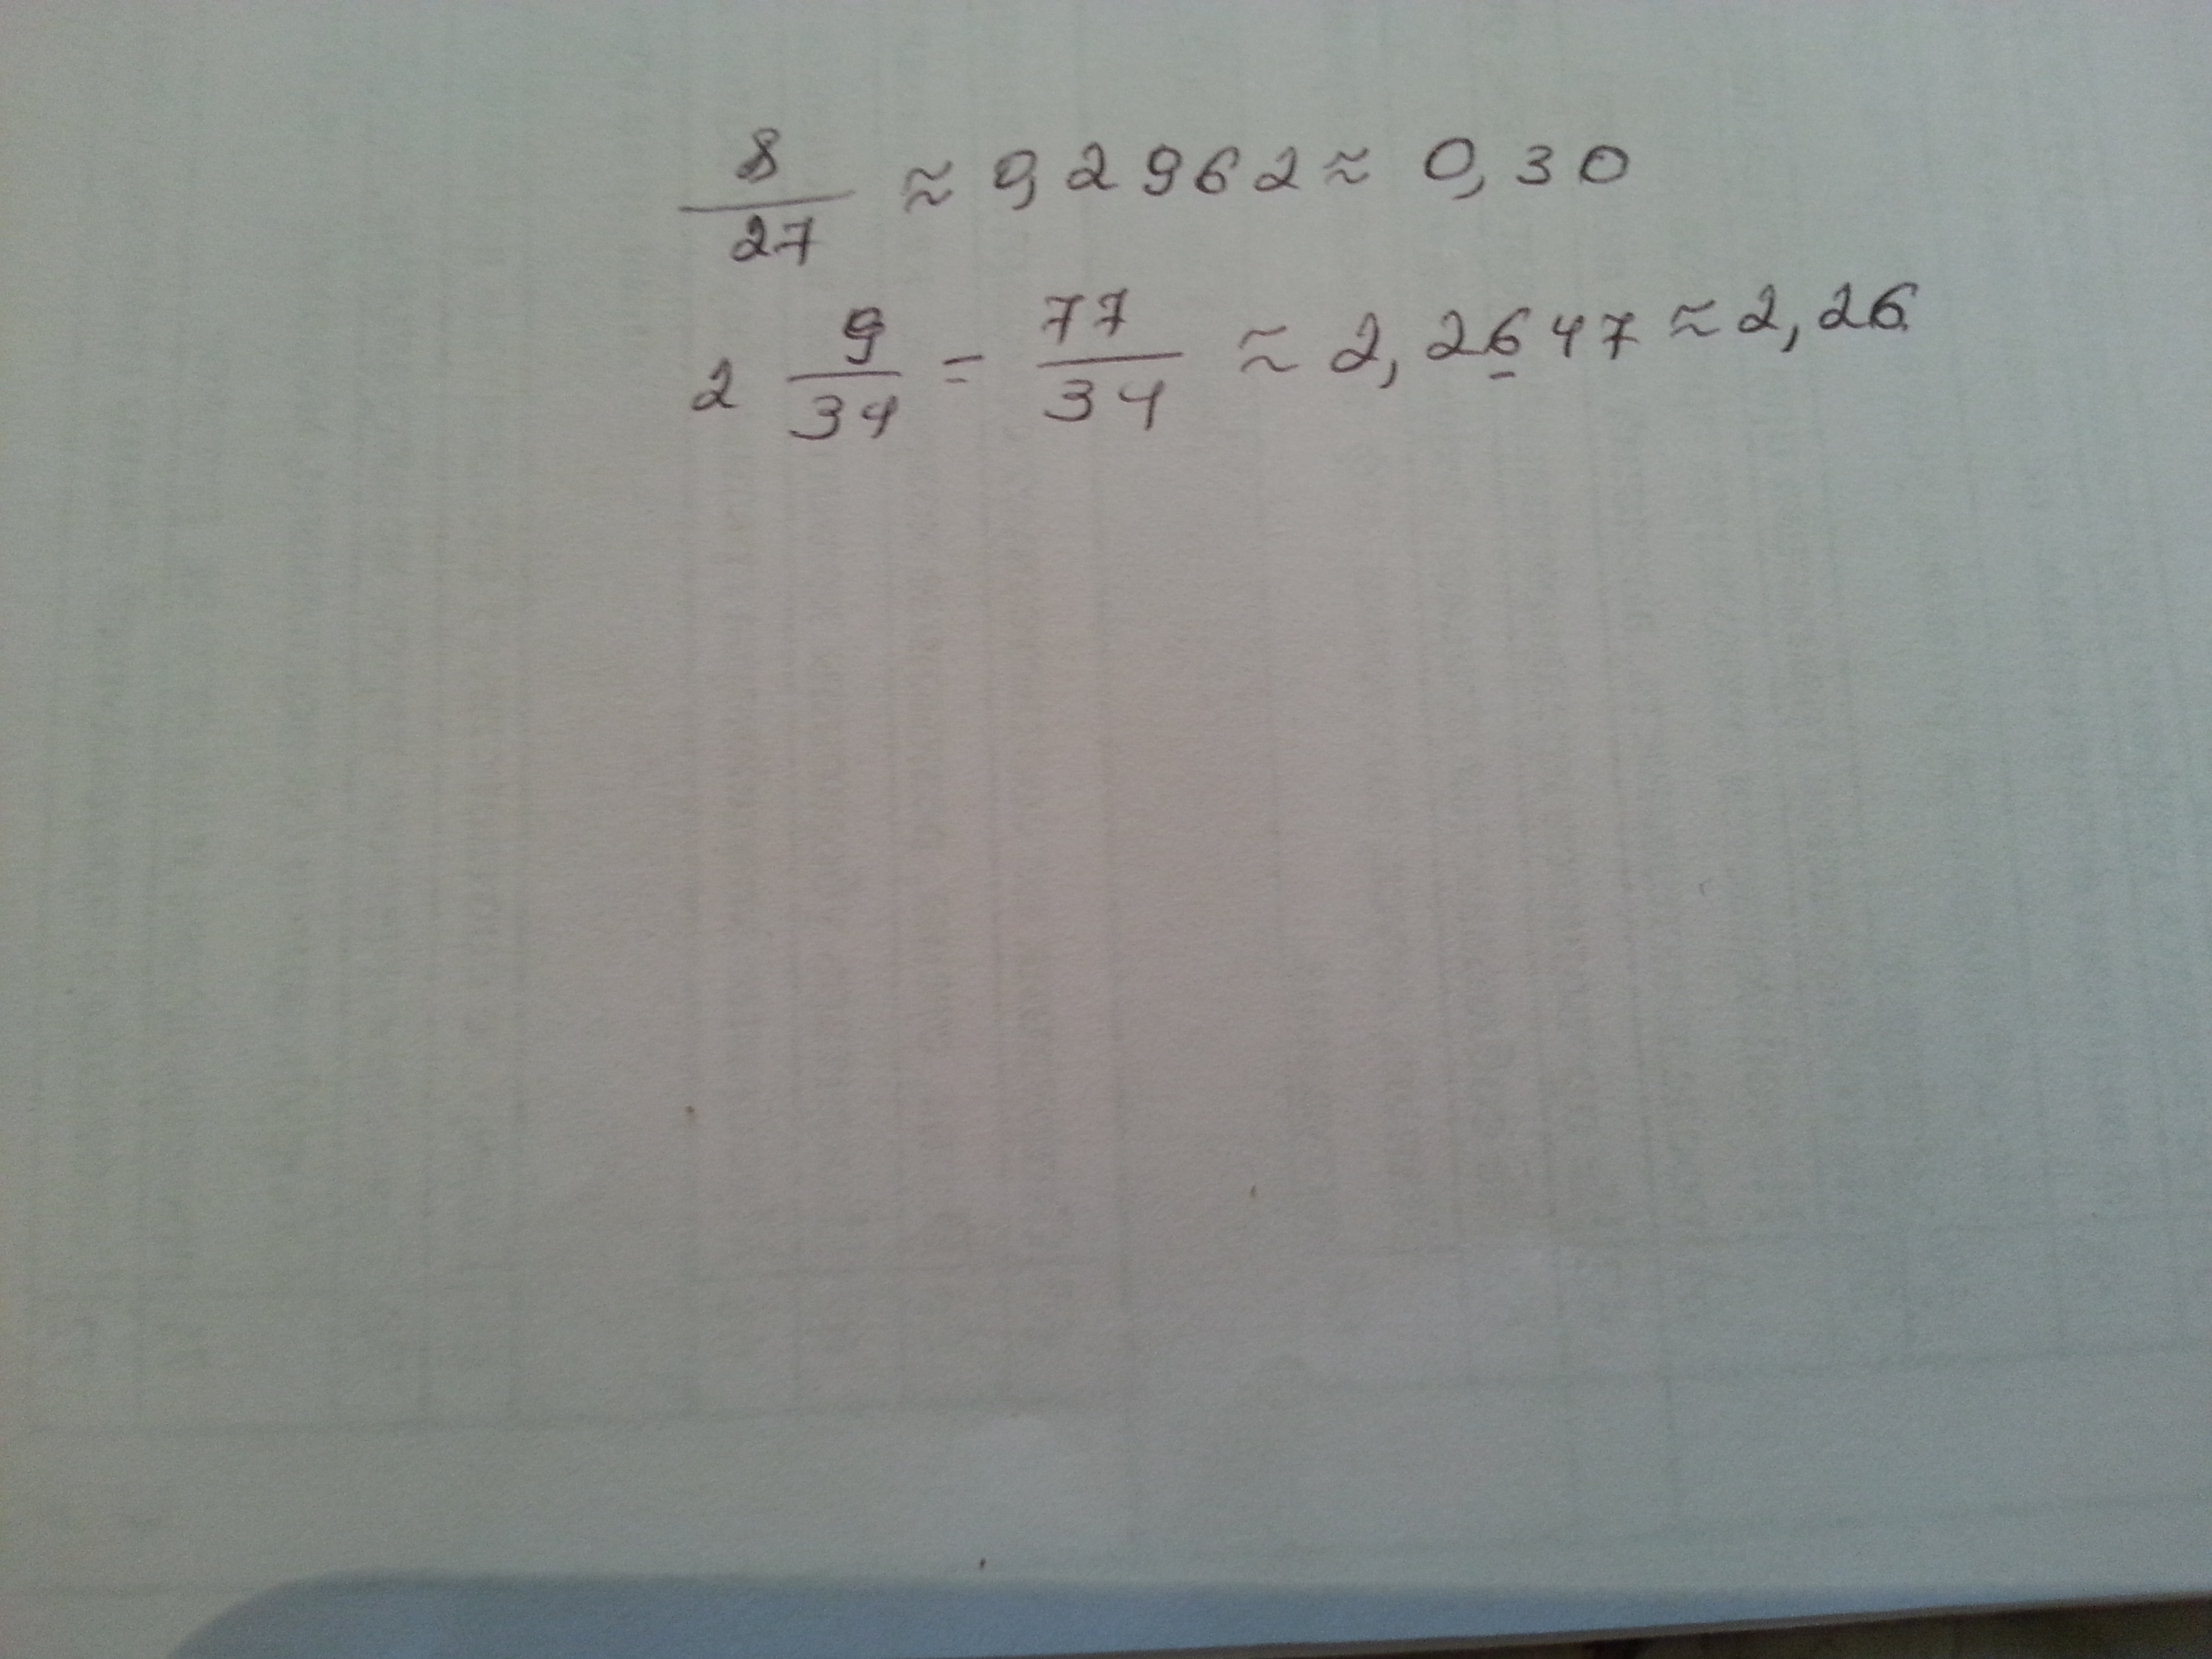 8/27 ≈ 0,2962 ≈ 0,30
2 9/34 = 77/34 ≈ 2,2647 ≈ 2,26